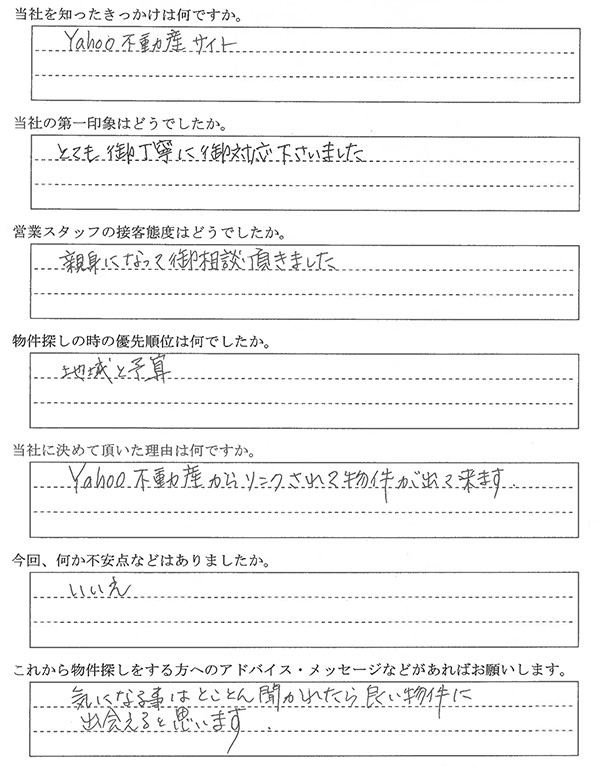 当社を知ったきっかけは何ですか。
Yahoo不動産サイト
当社の第一印象はどうでしたか。
とても御丁寧に御対応下さいました
営業スタッフの接客態度はどうでしたか。
親身になって御相談頂きました
物件探しの時の優先順位は何でしたか。
地域と予算
当社に決めて頂いた理由は何ですか。
Yahoo不動産からリンクされて物件が出て来ます.
今回、何か不安点などはありましたか。
いいえ
これから物件探しをする方へのアドバイス・メッセージなどがあればお願いします。
気になる事はとことん聞かれたら良い物件に
出会えると思います.